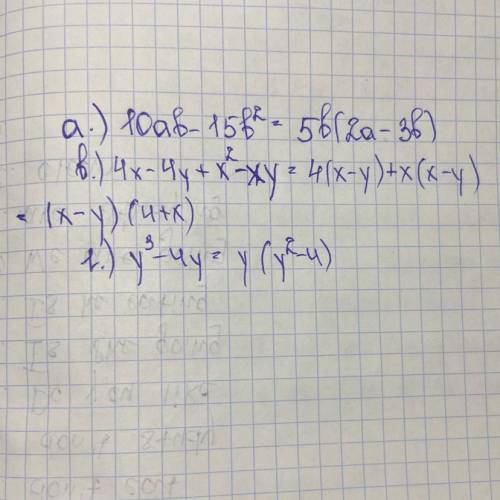 а.) 10ав - 15в² = 5в(2а - 3в)
в.) 4x - 4y + x² - xy = 4(x - y) + x(x - y)
= (x - y) (4 + x)
г.) y³ - 4y = y (y² - 4)